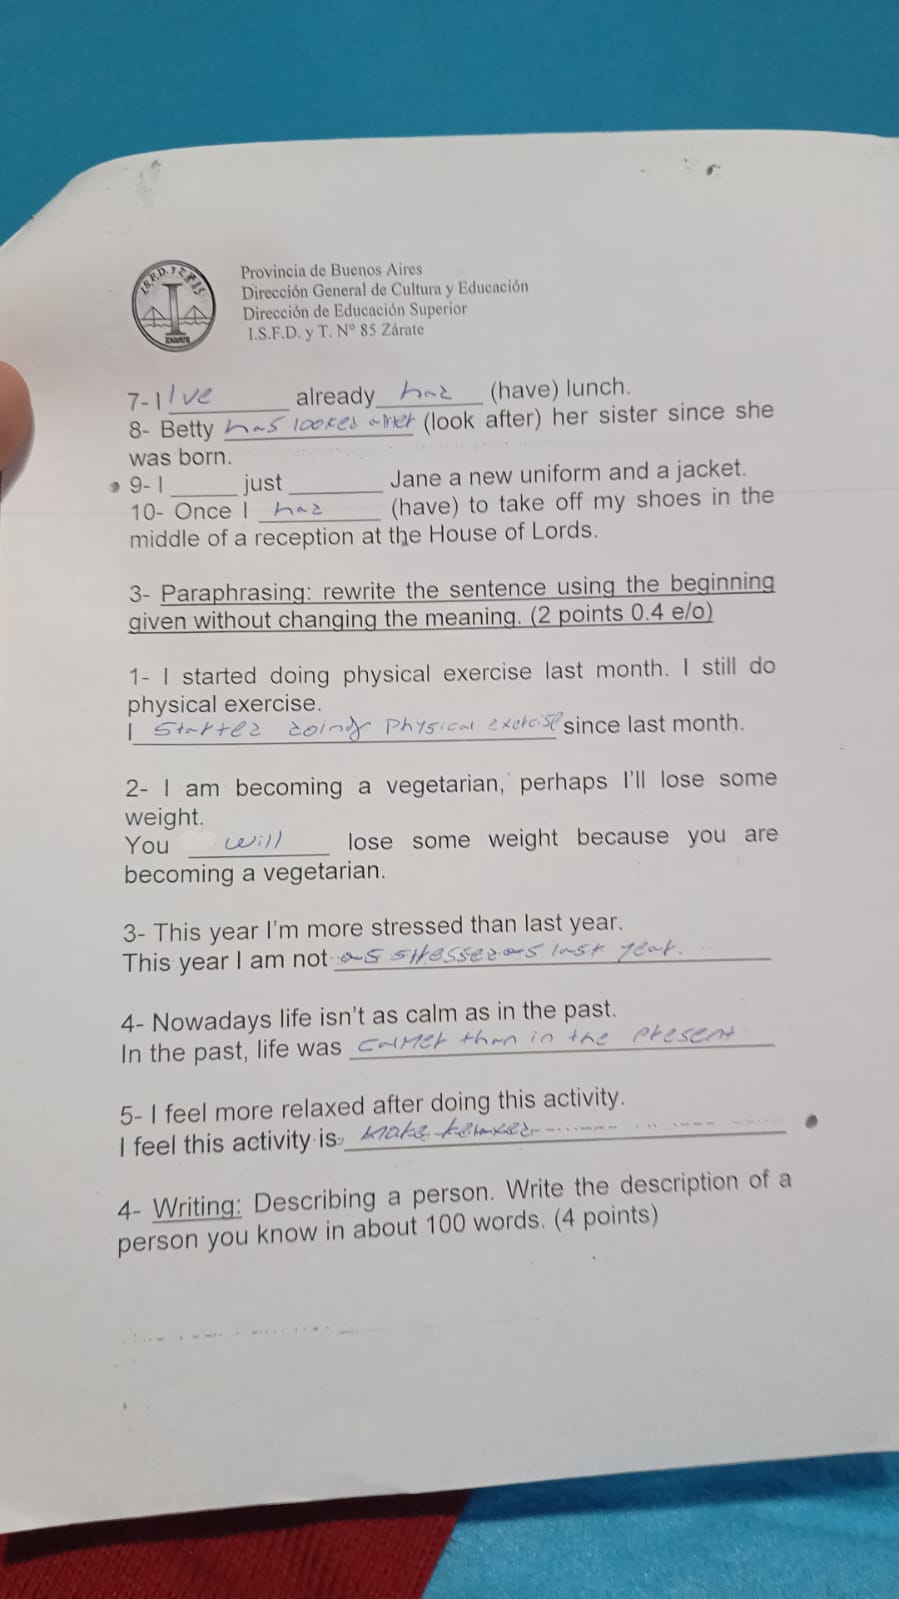 I.S.F.D. Y T. Nº 85
ZARATE
Provincia de Buenos Aires
Dirección General de Cultura y Educación
Dirección de Educación Superior
I.S.F.D. y T. N° 85 Zárate
7- I 've already had (have) lunch.
8- Betty has looked after (look after) her sister since she
was born.
9- I ______ just ________ Jane a new uniform and a jacket.
10- Once I had (have) to take off my shoes in the
middle of a reception at the House of Lords.
3- Paraphrasing: rewrite the sentence using the beginning
given without changing the meaning. (2 points 0.4 e/o)
1- I started doing physical exercise last month. I still do
physical exercise.
I started doing physical exercise since last month.
2- I am becoming a vegetarian, perhaps I'll lose some
weight.
You will lose some weight because you are
becoming a vegetarian.
3- This year I'm more stressed than last year.
This year I am not as stressed as last year.
4- Nowadays life isn't as calm as in the past.
In the past, life was calmer than in the present
5- I feel more relaxed after doing this activity.
I feel this activity is make relaxed
4- Writing: Describing a person. Write the description of a
person you know in about 100 words. (4 points)